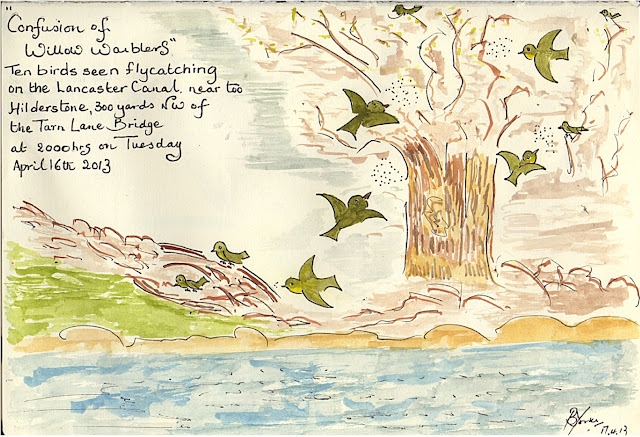 "Confusion of
Willow Warblers"
Ten birds seen flycatching
on the Lancaster Canal, near too
Hilderstone, 300 yards NW of
the Tarn Lane Bridge
at 2000hrs on Tuesday
April 16th 2013
17.4.13